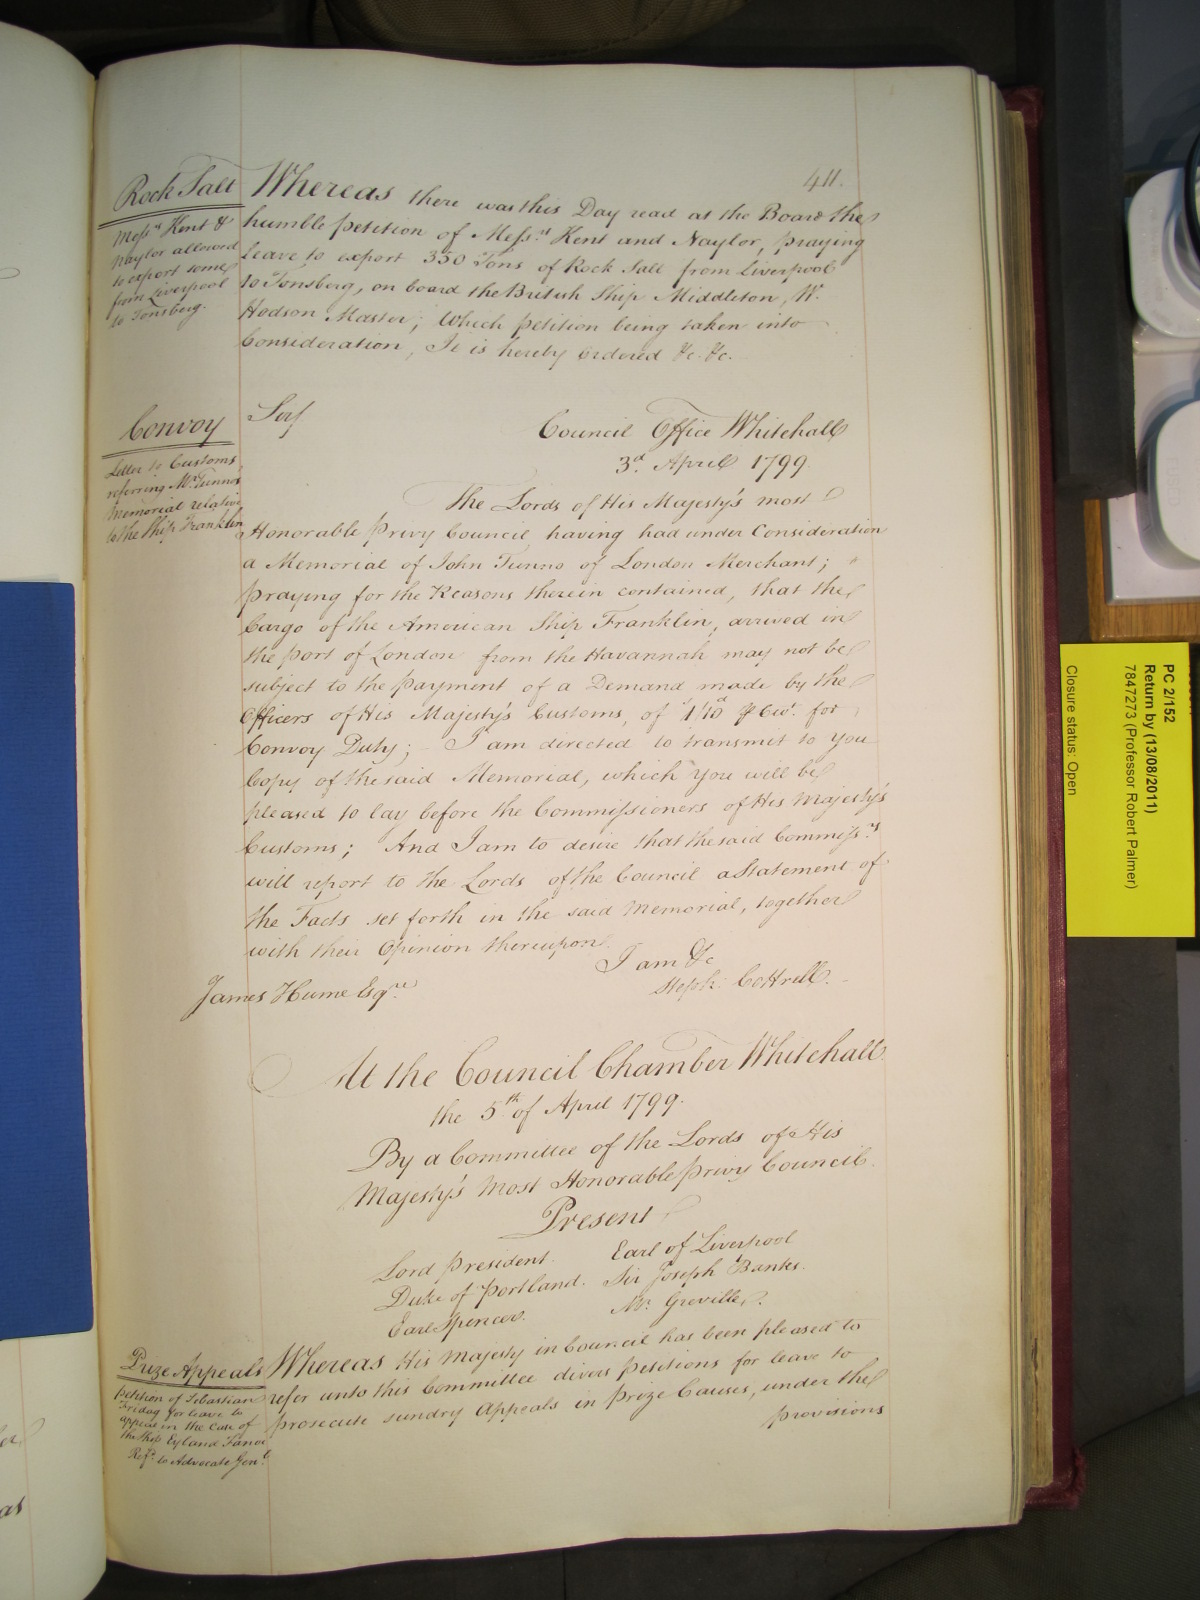 411.
Rock Salt
Mess.rs Kent &
Naylor allowed
to export some
from Liverpool
to Tonsberg.
Whereas there was this Day read at the Board the
humble petition of Mess.rs Kent and Naylor, praying
Leave to export 350 Tons of Rock Salt from Liverpool
to Tonsberg, on board the British Ship Middleton, W.
Hodson Master; Which petition being taken into
Consideration, It is hereby Ordered &c. &c.
Convoy
Letter to Customs,
referring Mr. Tunno's
Memorial relative
to the Ship Franklin
Sir,
Council Office Whitehall
3.d April 1799.
The Lords of His Majesty's most
Honorable Privy Council having had under Consideration
a Memorial of John Tunno of London Merchant;
praying for the Reasons therein contained, that the
Cargo of the American Ship Franklin, arrived in
the port of London from the Havannah may not be
subject to the payment of a Demand made by the
Officers of His Majesty's Customs, of for
Convoy Duty; I am directed to transmit to you
Copy of the said Memorial, which you will be
pleased to lay before the Commissioners of His Majesty's
Customs; And I am to desire that the said Commiss.rs
will report to the Lords of the Council a Statement of
the Facts set forth in the said Memorial, together
with their Opinion thereupon.
I am &c
Steph: Cottrell.
James Hume Esq.re
At the Council Chamber Whitehall
the 5.th of April 1799.
By a Committee of the Lords of His
Majesty's Most Honorable Privy Council.
Present
Lord President. Earl of Liverpool
Duke of Portland. Sir Joseph Banks.
Earl Spencer. Mr. Greville.
Prize Appeals
Petition of Sebastian
Friday for leave to
appeal in the Case of
the Ship Eyland Fanoe
Ref.d to Advocate Gen.l
Whereas His Majesty in Council has been pleased to
refer unto this Committee divers Petitions for leave to
prosecute sundry Appeals in Prize Causes, under the
provisions
PC 2/152
Return by (13/08/2011)
7847273 (Professor Robert Palmer)
Closure status: Open